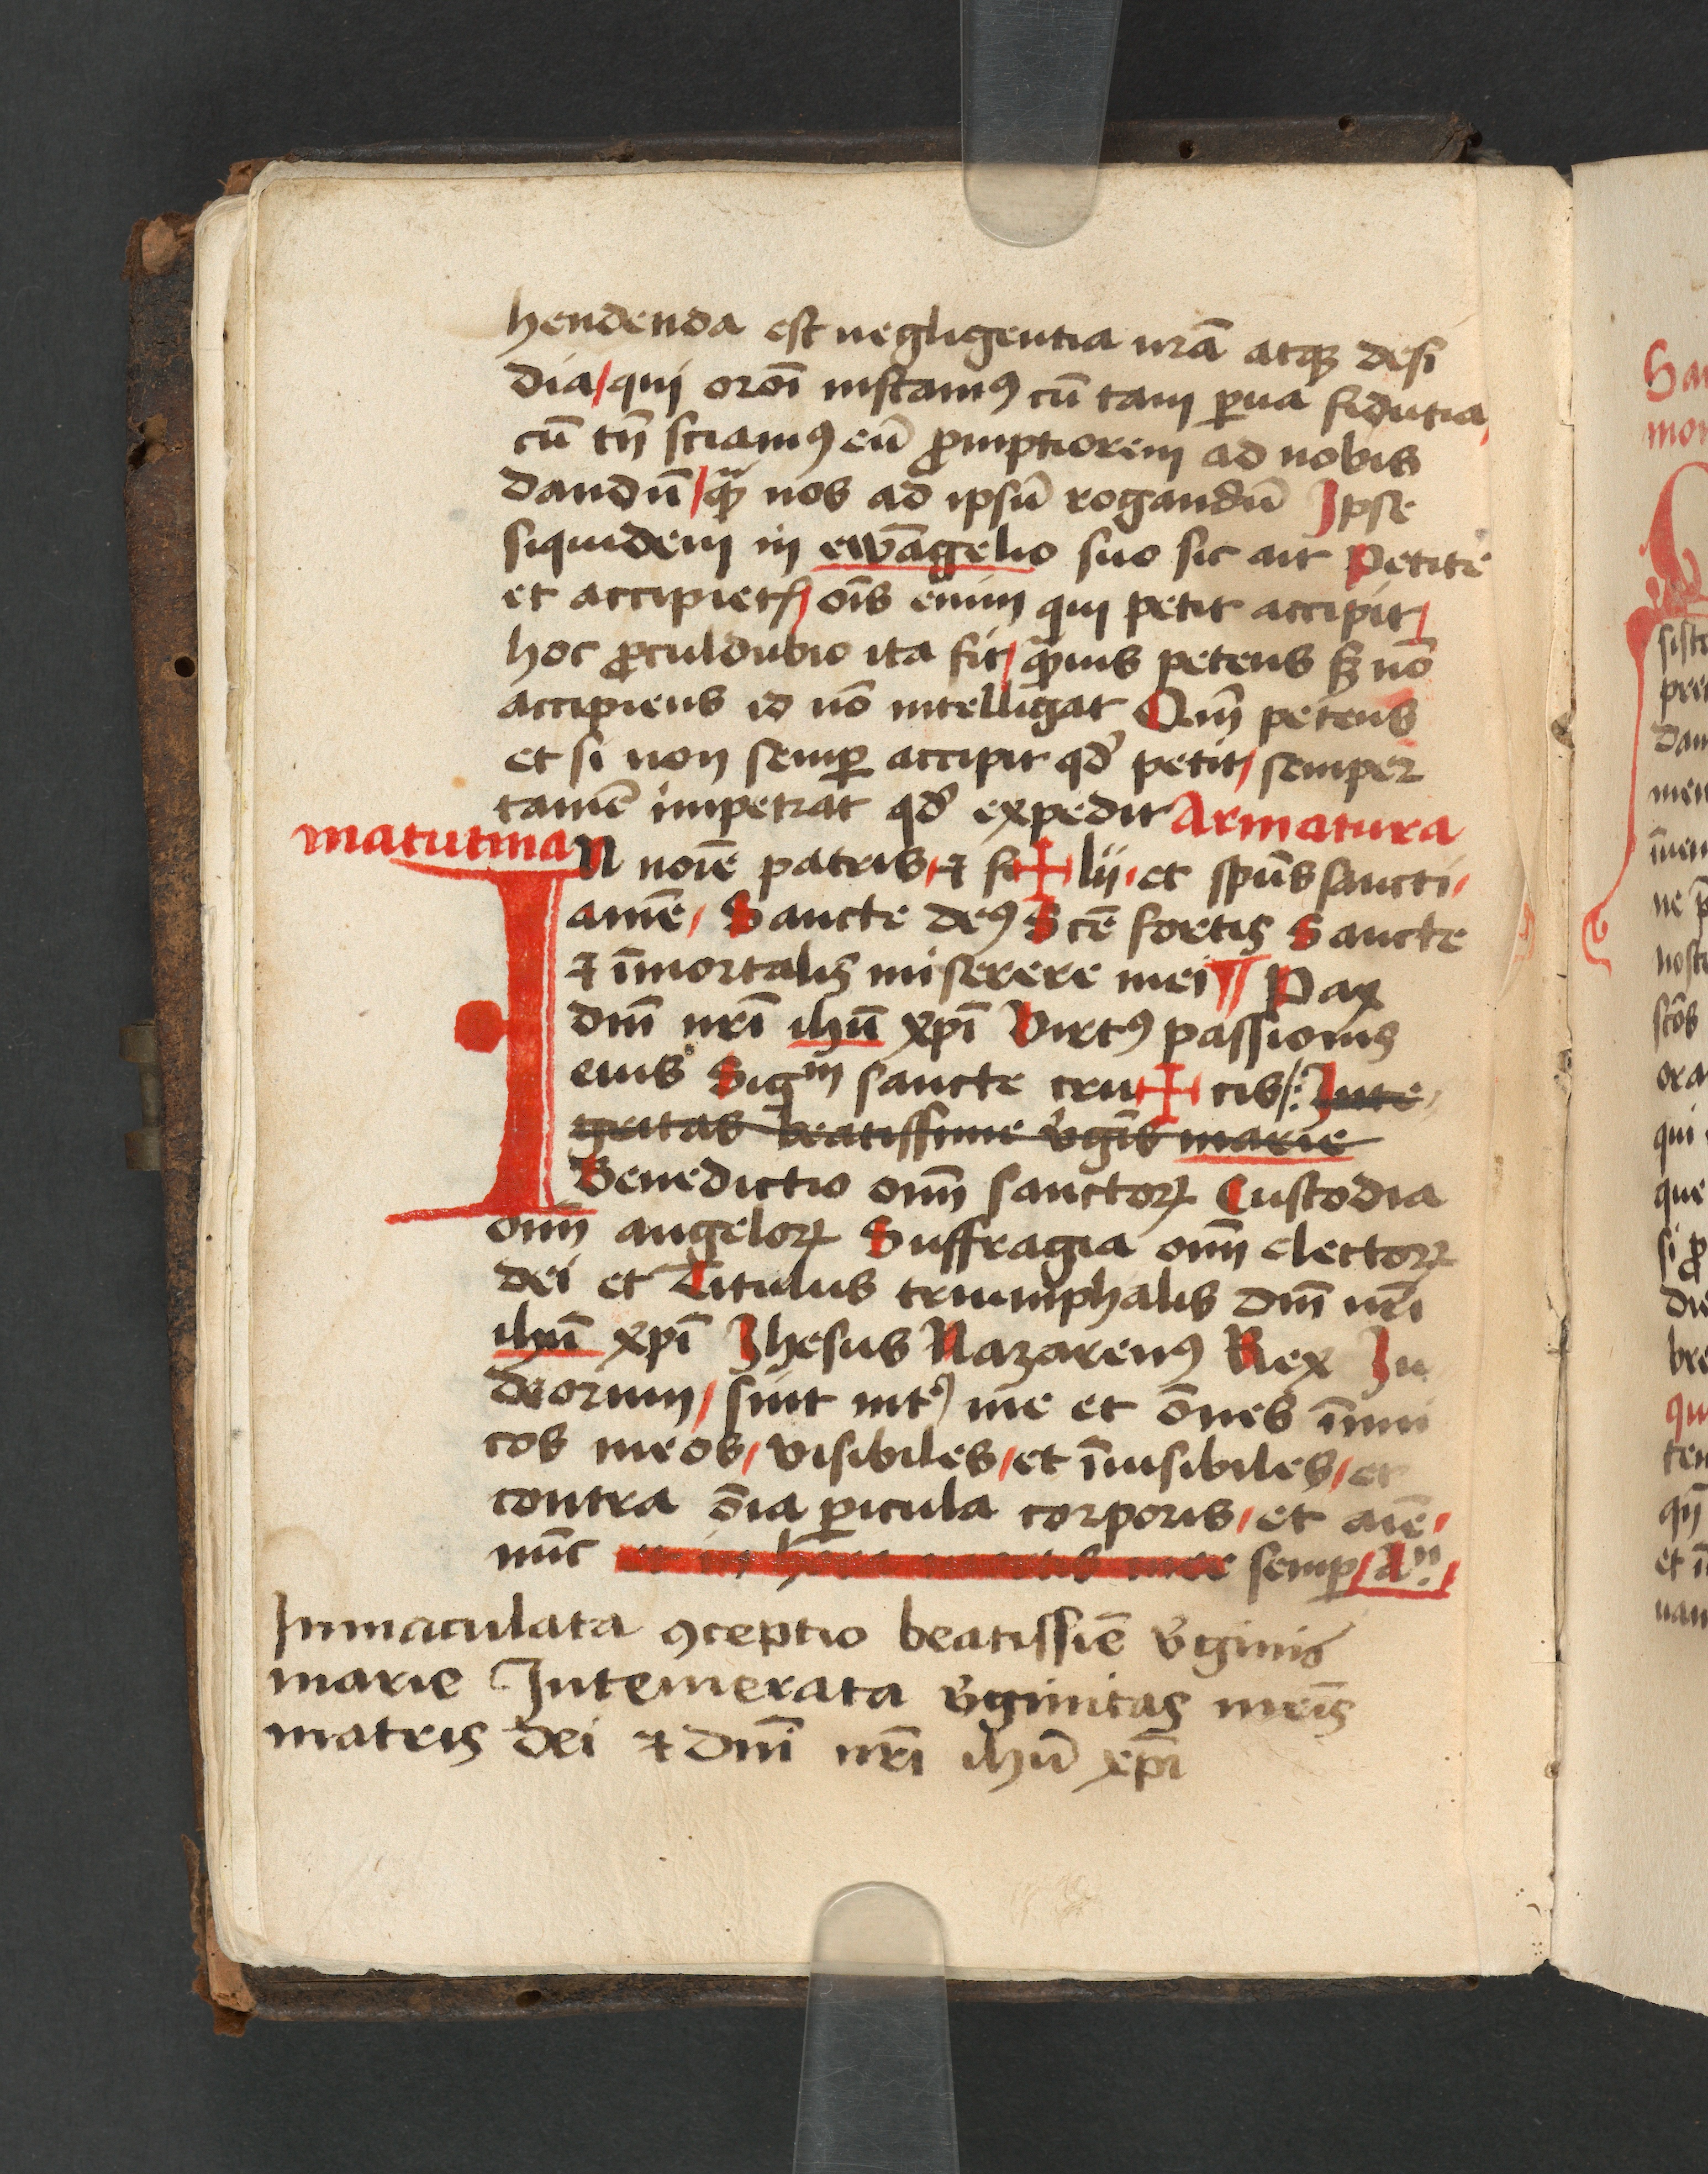 hendenda est negligentia nr̄a atqꝫ desi
dia/qui oror̄i instamꝰ cū tam ꝑua fidutia/
cū tn̄ sciamꝰ eū ꝓmptiorem ad nobis
dandū/qꝫ̄ nos ad ipsū rogandū Ipse
siquidem in ewāgelio suo sic ait Petite
et accipietꝭ/ oīs enim qui petit accipit/
hoc ꝓculdubio ita fit/ qꝫ̄uis petens sꝫ nō
accipiens id nō intelligat Qm̄ petens
et si non semꝑ accipit qd̓ petit/ semper
tamē impetrat qd̓ expedit Armatura
matutina
IN noīe patris/ ⁊ fi✠lii/ et spūs sancti/
amē/ Sancte deꝰ Scē fortis Sancte
⁊ īmortalis miserere mei ¶ Pax
dnī nrī ihū xpī Virtꝰ passionis
eius Sigᵐ sancte cru✠cis/: Inte
gritas beatissime v̓gīs marie
Benedictio om̄ sanctoꝝ Custodia
om̄ angeloꝝ Suffragia om̄ electoꝝ
dei et Titulus triumphalis dnī nrī
ihū xpī Ihesus Nazarenꝰ Rex Iu
deorum/ sint int̓ me et ōnes īimi
cos meos/ visibiles/ et īuisibiles/ et
contra ōia ꝑicula corporis/ et aīe/
nūc et in hora mortis mee semꝑ/ Aⁿ:/
Inmaculata ꝯceptio beatissiē v̓ginis
marie Intemerata v̓ginitas mr̄is
matris dei ⁊ dnī nrī ihū xpī
Sa
mo
siste
dam
ne
qui
que
die
bre
qu
et